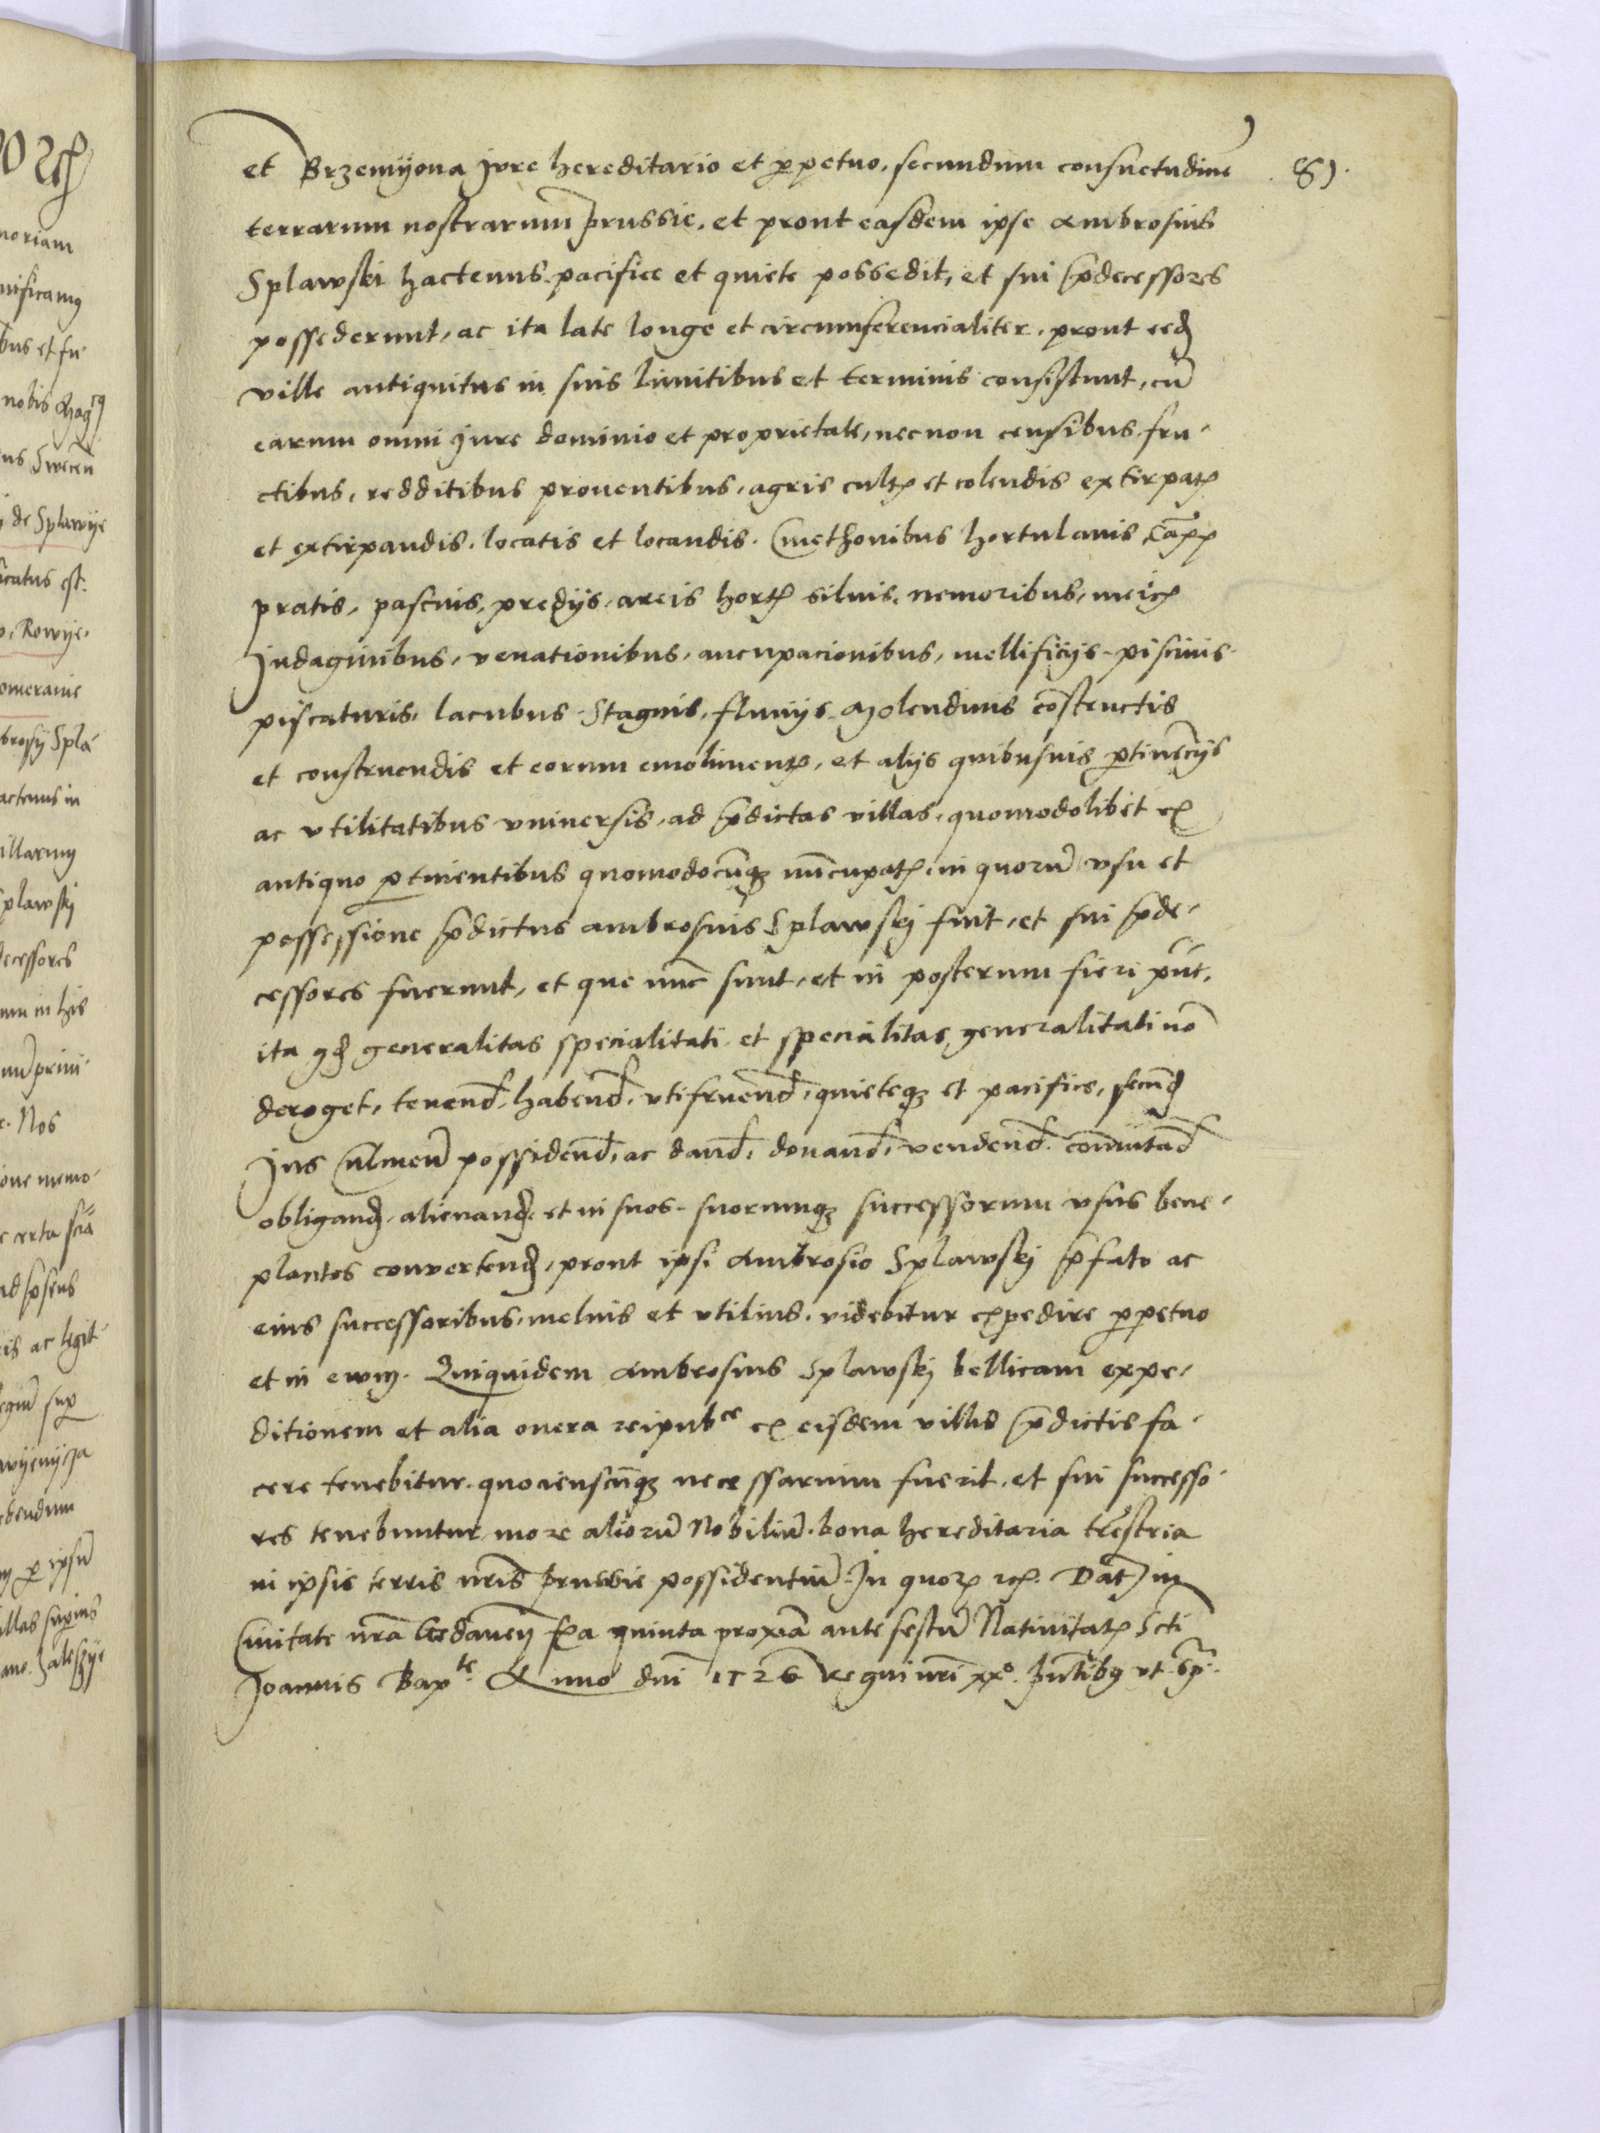 et Brzemyona Jure hereditario et perpetuo, secundum consuetudinē . 81.
terrarum nostrarum prussie, et prout easdem ipse Ambrosius
Splawski hactenus pacifice et quiete possedit, et sui p̄decessores
possederunt, ac ita late longe et circumferencialiter, prout eed
ville antiquitus in suis limitibus et terminis consistunt, cū
earum omni iure dominio et proprietate, necnon censibus fru-
ctibus, redditibus prouentibus, agris cultꝭ et colendis extirpatꝭ
et extirpandis, locatis et locandis. Cmethonibus hortulanis, Campꝭ
pratis, pascuis, predijs, areis hortꝭ siluis, nemoribus, mericꝭ
Indaginibus, venationibus, aucupacionibus, mellificijs, piscinis
piscaturis, lacubus Stagnis, fluuijs, Molendinis cōstructis
et construendis et eorum emolimentꝭ, et alijs quibusuis ꝑtinēcijs
ac vtilitatibus vniuersis, ad p̄dictas villas, quomodolibet ex
antiquo ꝑtinentibus quomodocūqꝫ nūcupatꝭ, in quorū vsu et
possessione p̄dictus ambrosius Splawskj fuit, et sui p̄de-
cessores fuerunt, et que nūc sunt, et in posterum fieri pn̄t,
ita qd generalitas specialitati et specialitas generalitati nō
deroget, tenend, habend, vtifruend, quieteqꝫ et pacifice, secūd
Jus Culmen̄ possidend, ac dand, donand, vendend, commutand
obligand, alienand, et in suos suorumqꝫ successorum vsus bene-
placitos convertend, prout ipsi Ambrosio Splawskj p̄fato ac
eius successoribus, melius et vtilius videbitur expedire perpetuo
et in ewm. Quiquidem Ambrosius Splawskj bellicam expe-
ditionem et alia onera reipubce ex eisdem villis p̄dictis fa-
cere tenebitur, quocienscūqꝫ necessarium fuerit, et sui successo-
res tenebuntur more aliorū Nobiliū, bona hereditaria tr̄estria
in ipsis terris nr̄is prussie possidentiū. In quorꝭ rcꝭ. Dat in
Ciuitate nr̄a Gedaneñ fe̅ra quinta proxīa ante festū Natiuitatꝭ Scti
Joannis Bapte Anno dn̄i 1526 Regni nr̄i xxo. Pn̄tibꝫ vt. Sp̄.